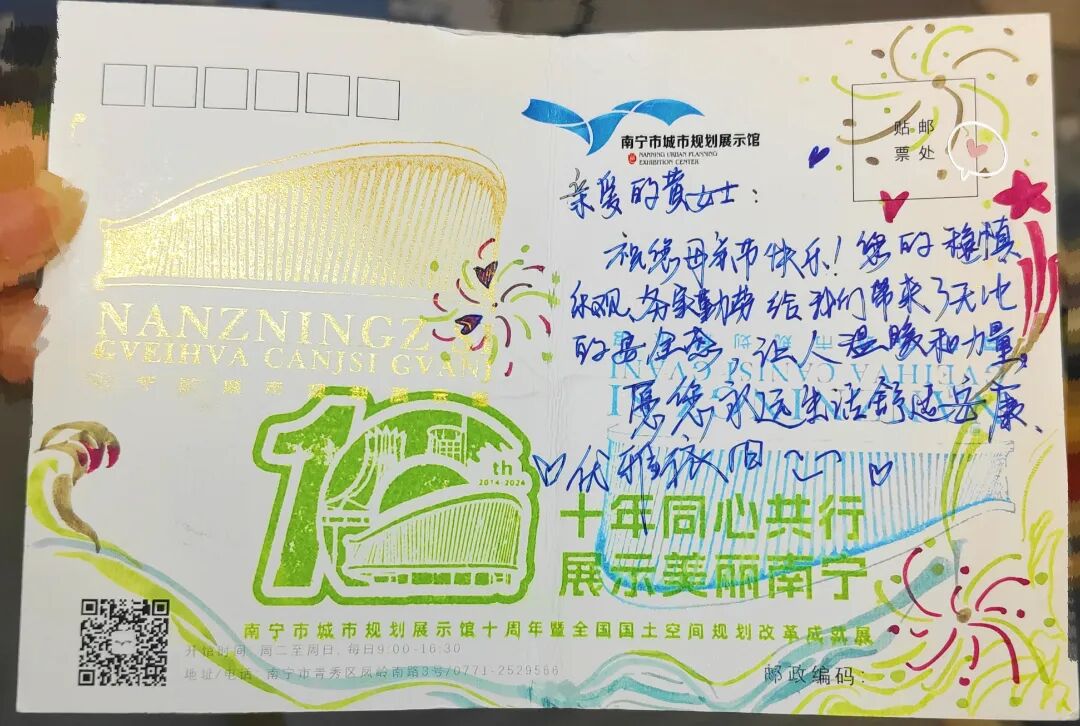 南宁市城市规划展示馆
NANNING URBAN PLANNING
EXHIBITION CENTER
贴邮
票处
亲爱的黄女士：
祝您母亲节快乐！您的稳慎
乐观、务实勤劳给我们带来了无比
的安全感，让人温暖和力量。
愿您永远生活舒适安康、
优雅依旧
NANZNINGZ SI
GVEIHVA CANJSI GVANJ
GVEIHVA CANJSI GVANJ
10th
2014-2024
十年同心共行
展示美丽南宁
南宁市城市规划展示馆十周年暨全国国土空间规划改革成就展
开馆时间：周二至周日，每日9:00-16:30
地址/电话：南宁市青秀区凤岭南路3号/0771-2529566
邮政编码：